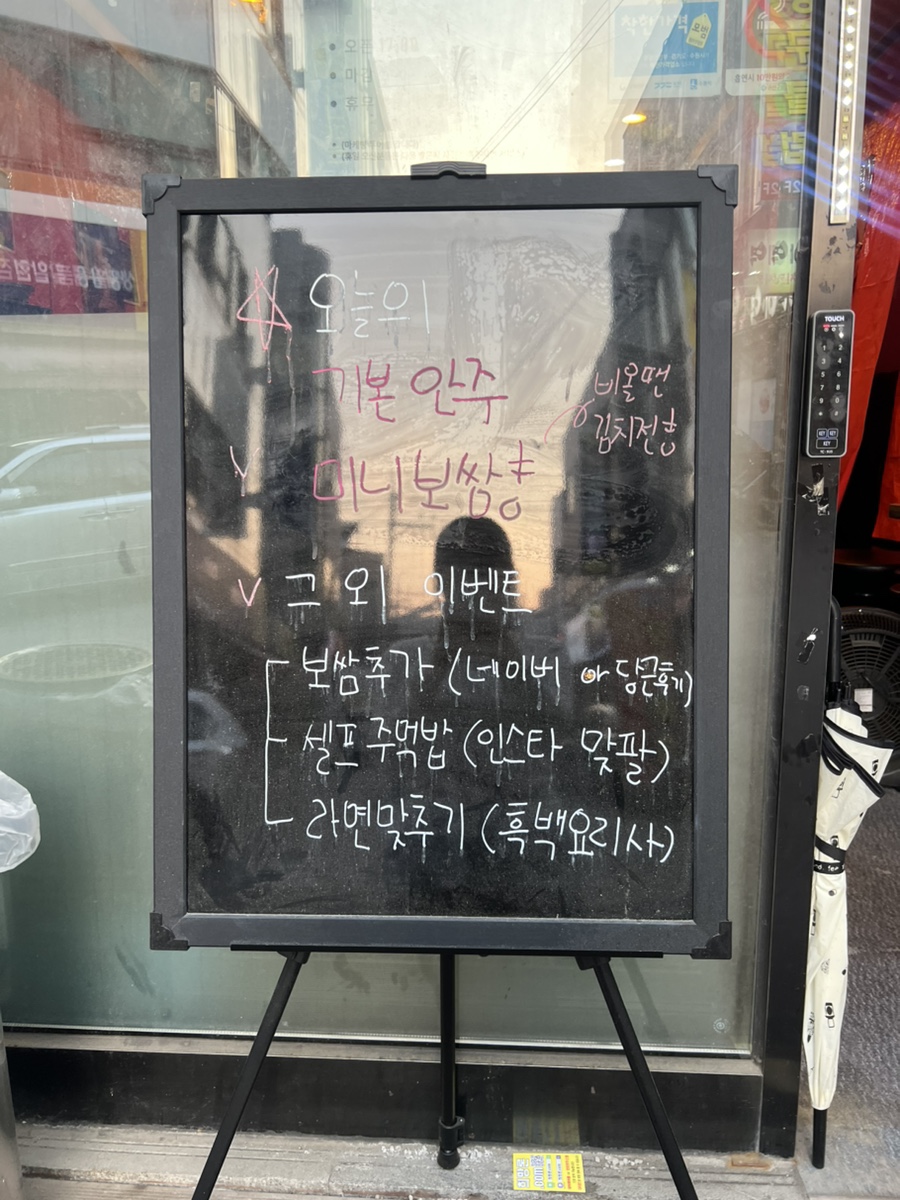 오늘의
기본 안주
비올땐
김치전!
미니보쌈!
V 그 외 이벤트
보쌈추가 (네이버 or 당근후기)
셀프 주먹밥 (인스타 맞팔)
라면맞추기 (흑백요리사)
TOUCH